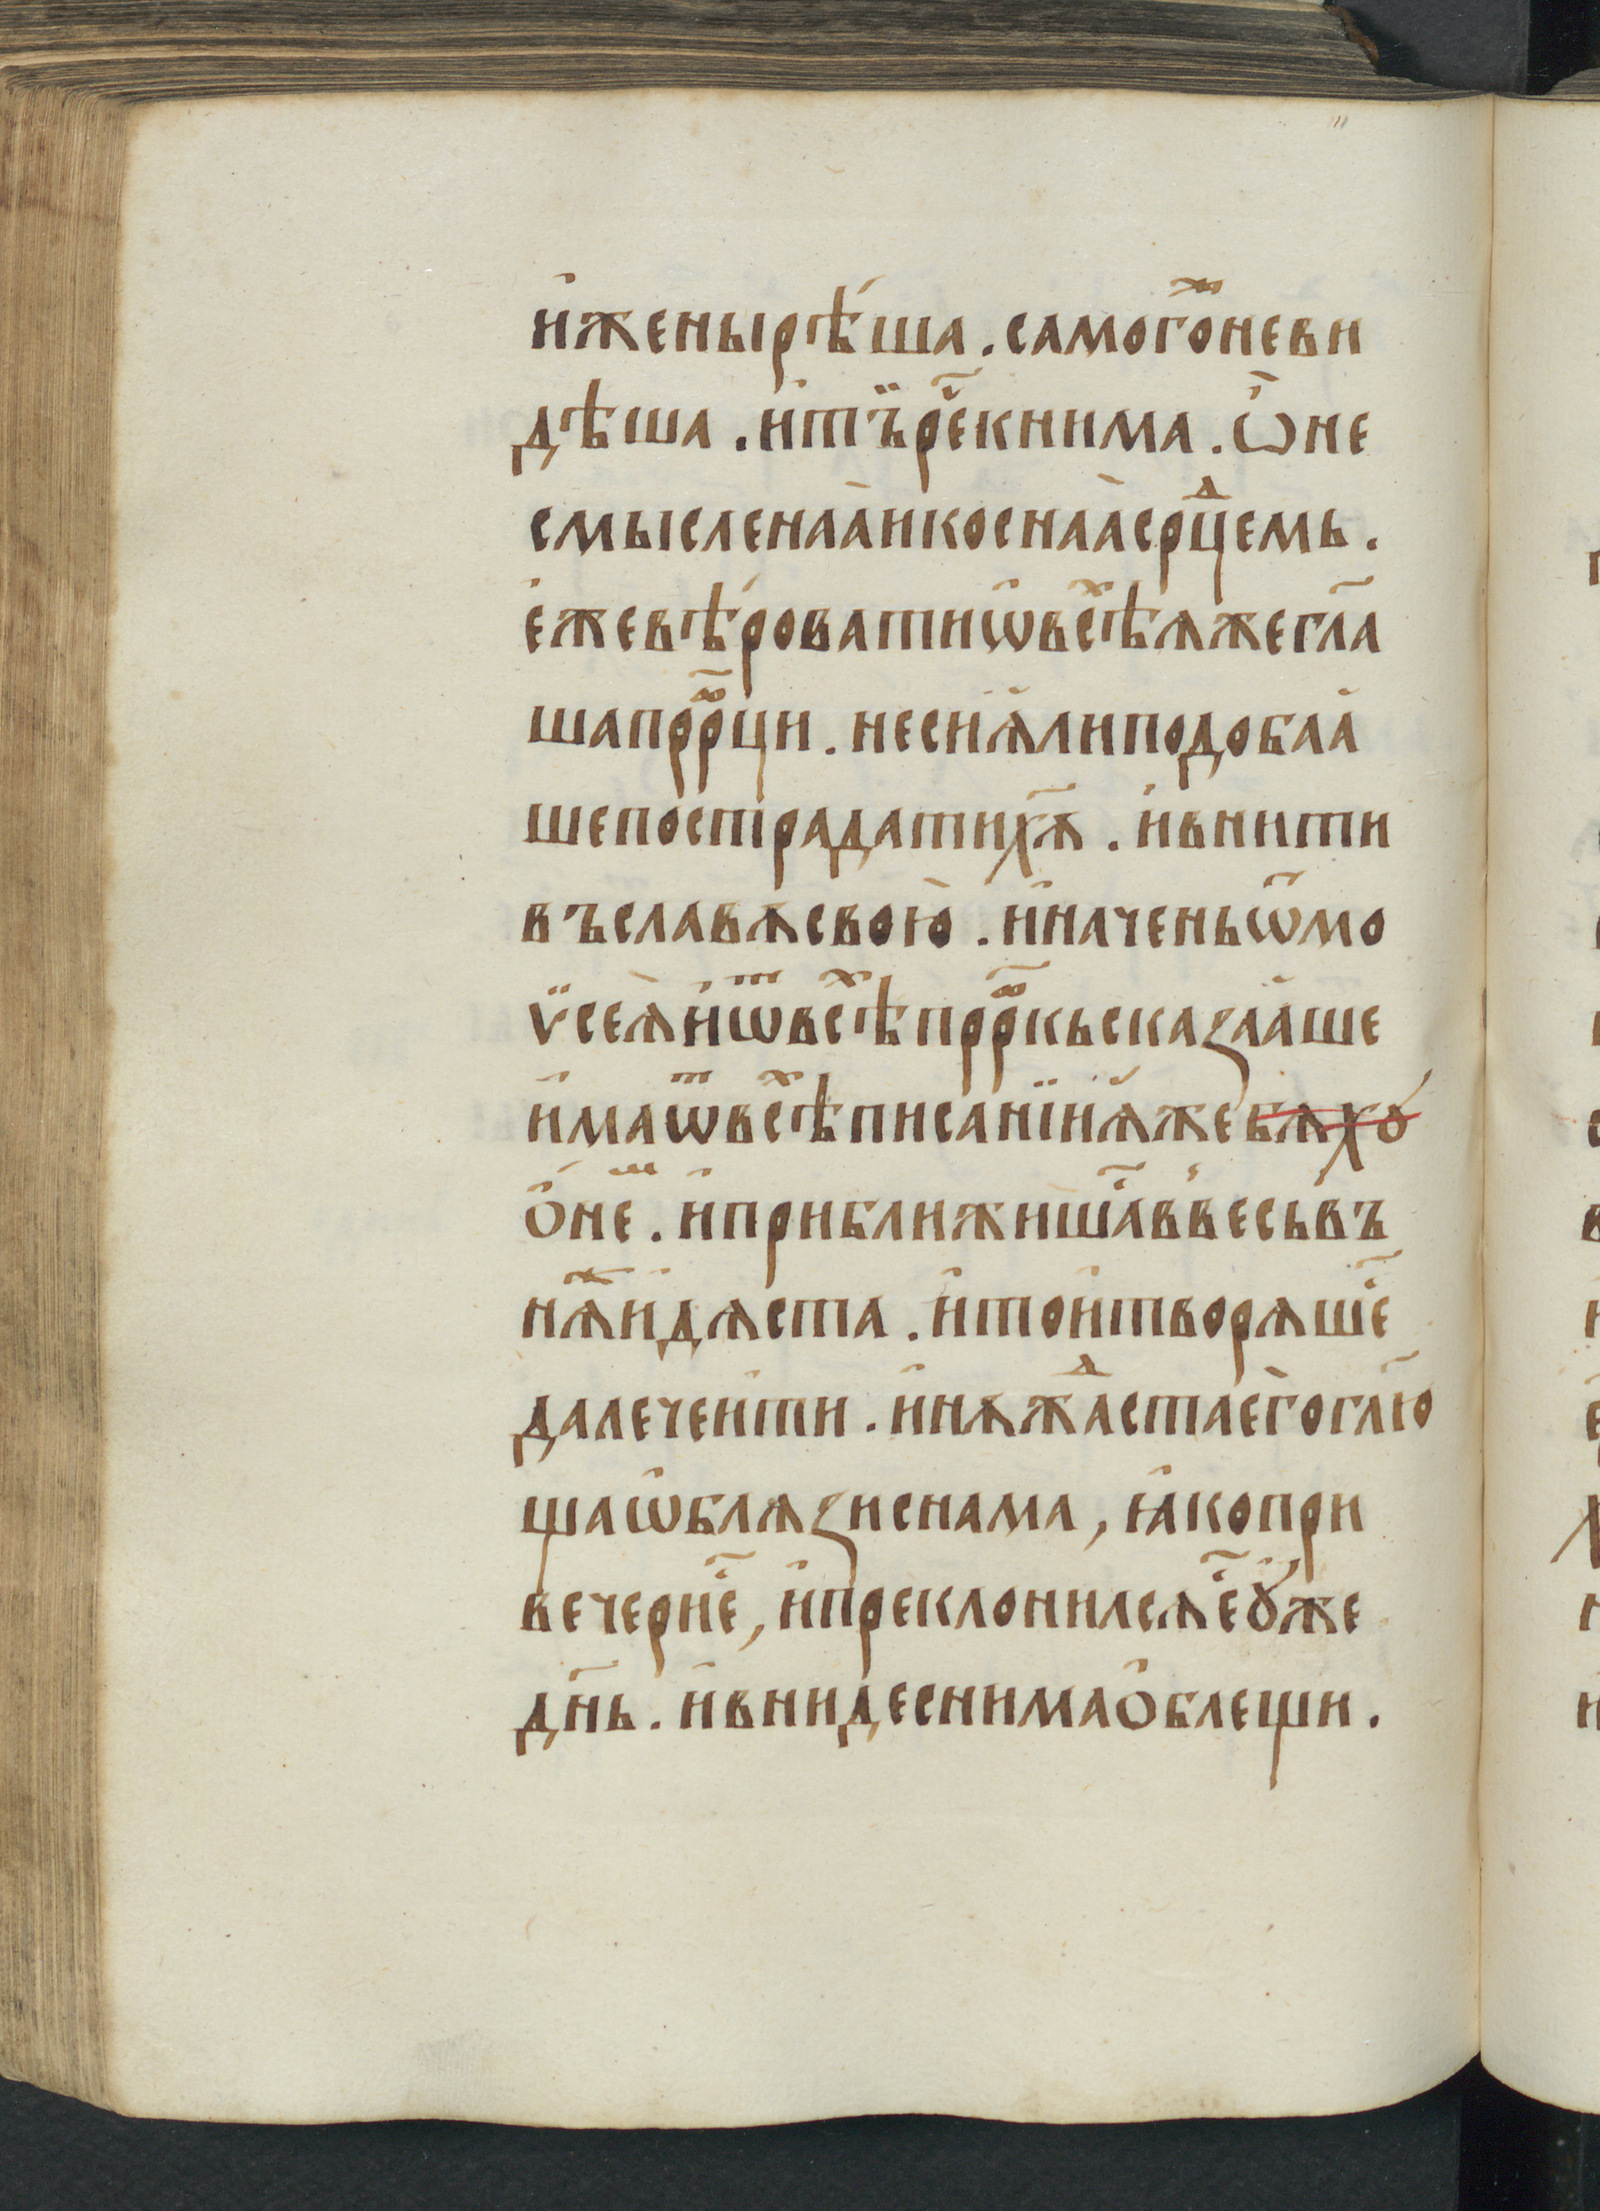 и҆женырѣ́ша . самого҆ⷤневи
дѣша . и҆тъ̈рече҃книма . ѽне
смысленаа҆икоснаа҆срⷣцемь .
е҆жевѣ́роватиѡ҆все҃ⷯѣꙗжегл҃а
шапррⷪ҇ци . несиѧ҆липодобаа҆
шепострадатихѫ҃ . и҆внити
въславѫсвою҆ . и҆наченьѿмо
ѵ̈сеѧ҆и҆ѿⷮвсѣⷯпррⷪ҇кьсказаа҆ше
и҆маѿⷮвсѣⷯписанїиꙗ҆жебѧхо́
ѻ҆неⷨ . и҆приближиша҃в҆весьв҆ъ
нѫⷤи҆дѧста . и҆тои҆творѧше҃
далечеи҆ти . и҆нѫжⷣа҆стае҆гогл҃ю
щаѡ҆блѧзиснама , ꙗ҆копри
вечерне҃ , и҆преклонилсѧе҃ꙋ҆же
дн҃ь . и҆внидеснимаѻ҆блещи .